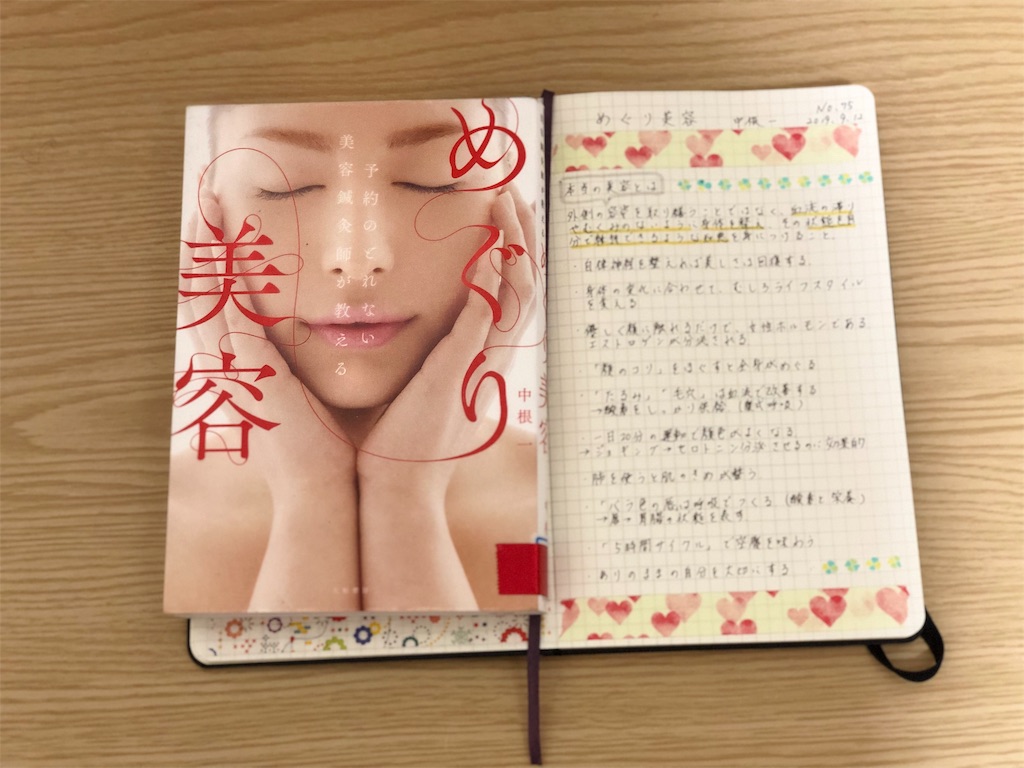 めぐり
美容
予約のとれない
美容鍼灸師が教える
中根一
めぐり美容 中根一
No.75
2019.9.12
本当の美容とは
外側の容姿を取り繕うことではなく、血流の滞り
やむくみのないように身体を整え、その状態を自
分で維持できるような知恵を身につけること。
・自律神経を整えれば美しさは回復する。
・身体の変化に合わせて、むしろライフスタイル
を変える
・優しく顔に触れるだけで、女性ホルモンである
エストロゲンが分泌される
・「顔のコリ」をほぐすと全身がめぐる
・「たるみ」「毛穴」は血流で改善する
→酸素をしっかり供給(腹式呼吸)
・一日20分の運動で顔色がよくなる
→ジョギング→セロトニン分泌させるのに効果的
・肺を使うと肌のきめが整う
・「バラ色の唇は呼吸でつくる(酸素と栄養)
→唇→胃腸の状態を表す
・「5時間サイクル」で空腹を味わう
・ありのままの自分を大切にする